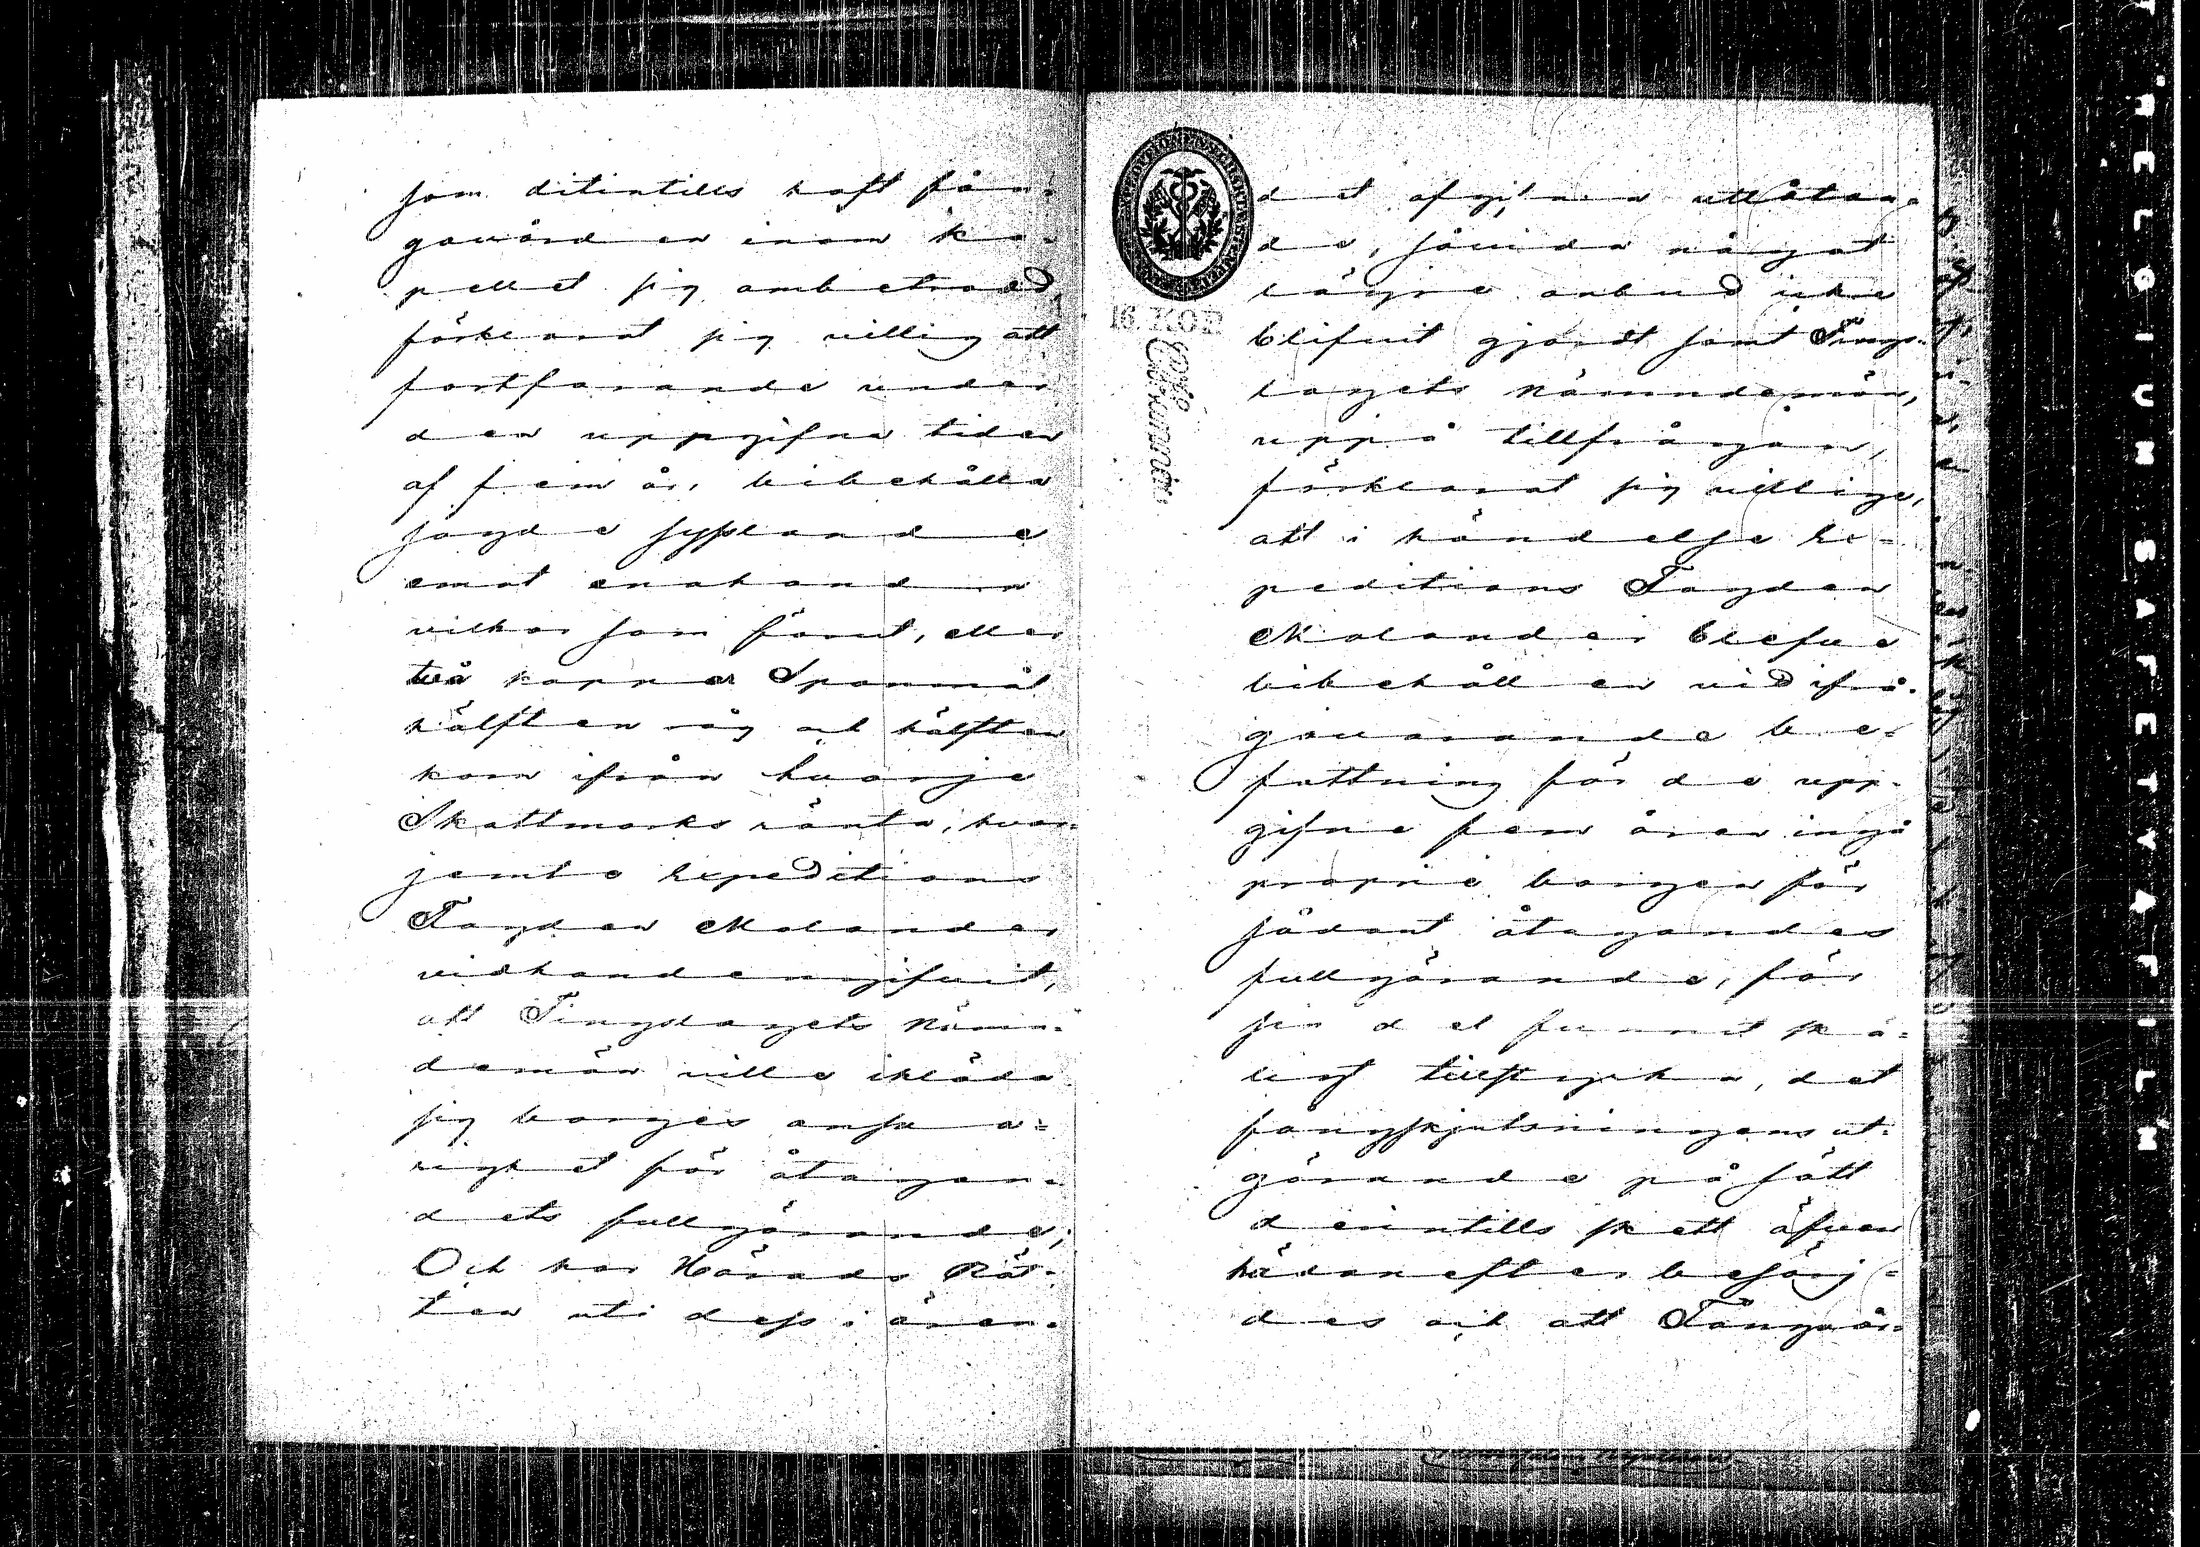 som ditintills haft fån-
gavården inom ka-
pellet sig ambetrodd,
förklarat sig villig att
fortfarande under
den uppgifna tiden
af fem år, bibehålla
sagde sysslande
emot enahanda
vilkor som förut, eller
två kappar Spanmål
hälften råg och hälften
korn ifrån hvarje
Skattmarks ränta, hvar-
jemte Expeditions
Fogden Malander
vidhandengifvit,
att Tingslagets Näm-
demän ville ikläda
sig borges ansva=
righet för åtagan-
dets fullgörande;
Och har Härads Rät-
ten uti dess i ären-
det afgifna utlåtan-
de, såvida något
lägre anbud icke
blifvit gjordt samt Tings-
lagets Nämndemän,
uppå tillfrågan,
förklarat sig villige,
att i händelse Ex-
peditions Fogden
Malander blefve
bibehållen vid ifrå-
gavarande be-
fattning för de upp-
gifne fem åren ingå
proprie borgen för
sådant åtagandes
fullgörande, för
sin del funnit skä=
ligt tillstyrka, det
fångskjutsningens ut-
görande på sätt
derintills skett äfven
hädanefter besörj=
des och att Fångvår-
16. KOP